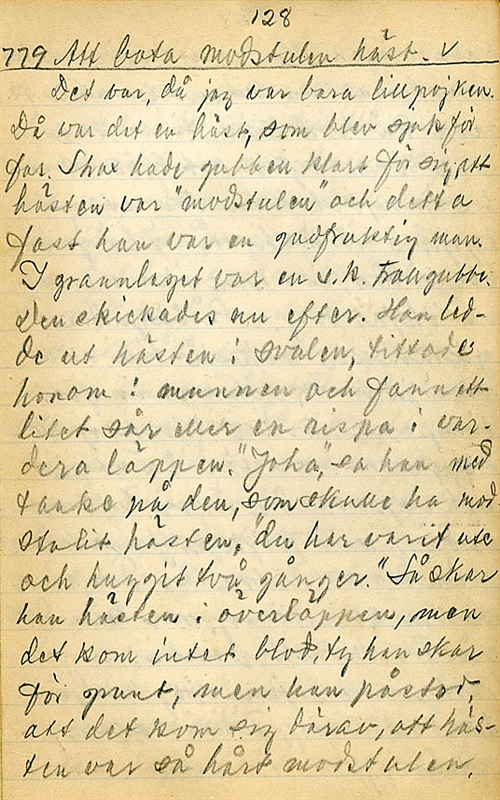 128
779 Att bota modstulen häst. v
Det var, då jag var bara lillpojken.
Då var det en häst, som blev sjuk för
far. Strax hade gubben klart för sig, att
hästen var "modstulen" och detta
fast han var en gudfruktig man.
I grannlaget var en s.k. trollgubbe.
Den skickades nu efter. Han led-
de ut hästen i svalen, tittade
honom i munnen och fann ett
litet sår eller en rispa i var-
dera läppen. "Joha", sa han med
tanke på den, som skulle ha mod
stulit hästen, "du har varit ute
och huggit två gånger." Så skar
han hästen i överläppen, men
det kom intet blod, ty han skar
för grunt, men han påstod,
att det kom sig därav, att häs-
ten var så hårt modstulen.